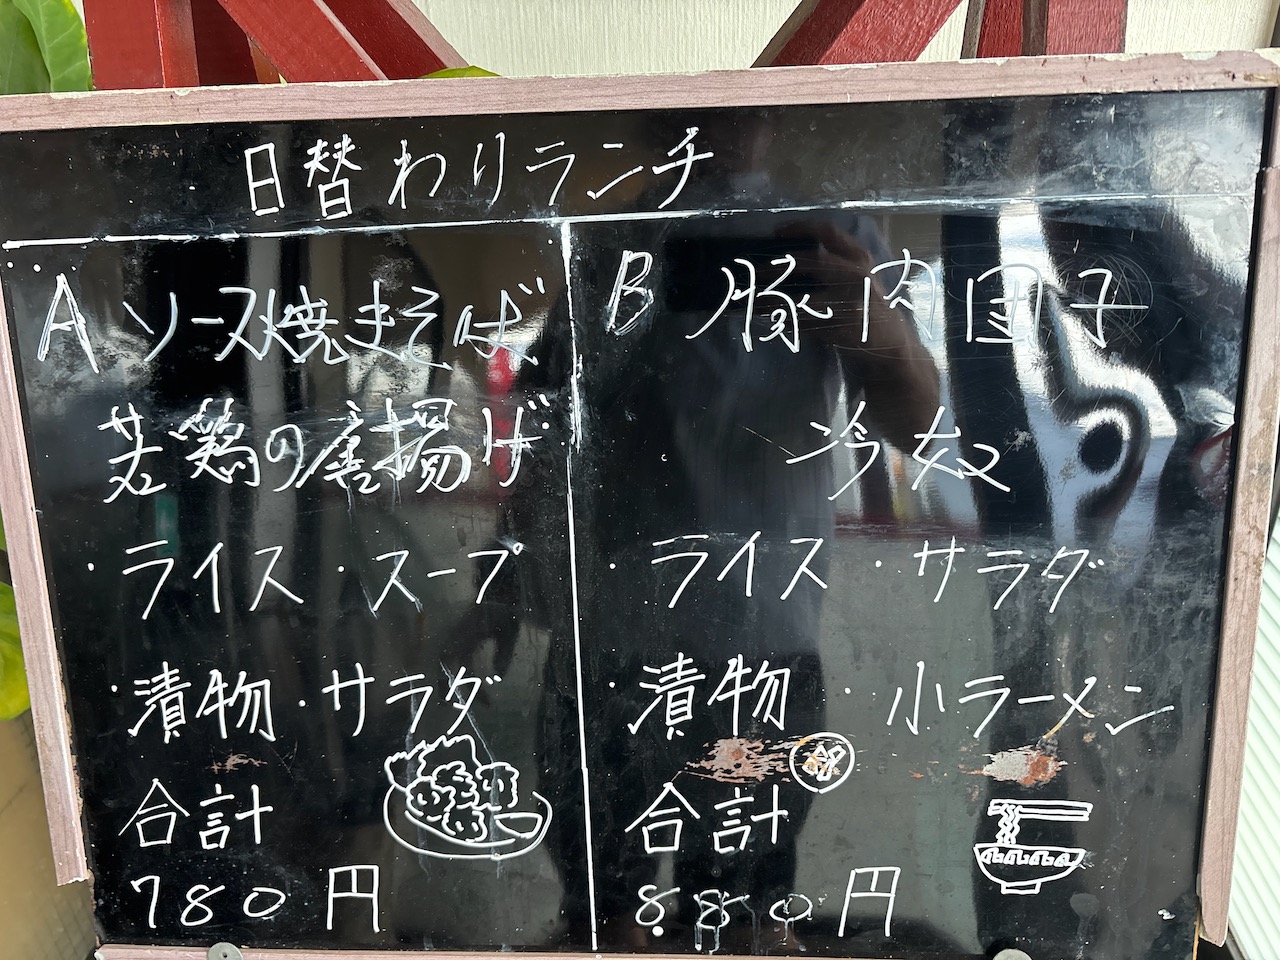 日替わりランチ
A ソース焼きそば
若鶏の唐揚げ
・ライス・スープ
・漬物・サラダ
合計
780円
B 豚肉団子
冷奴
・ライス・サラダ
・漬物・小ラーメン
合計
880円